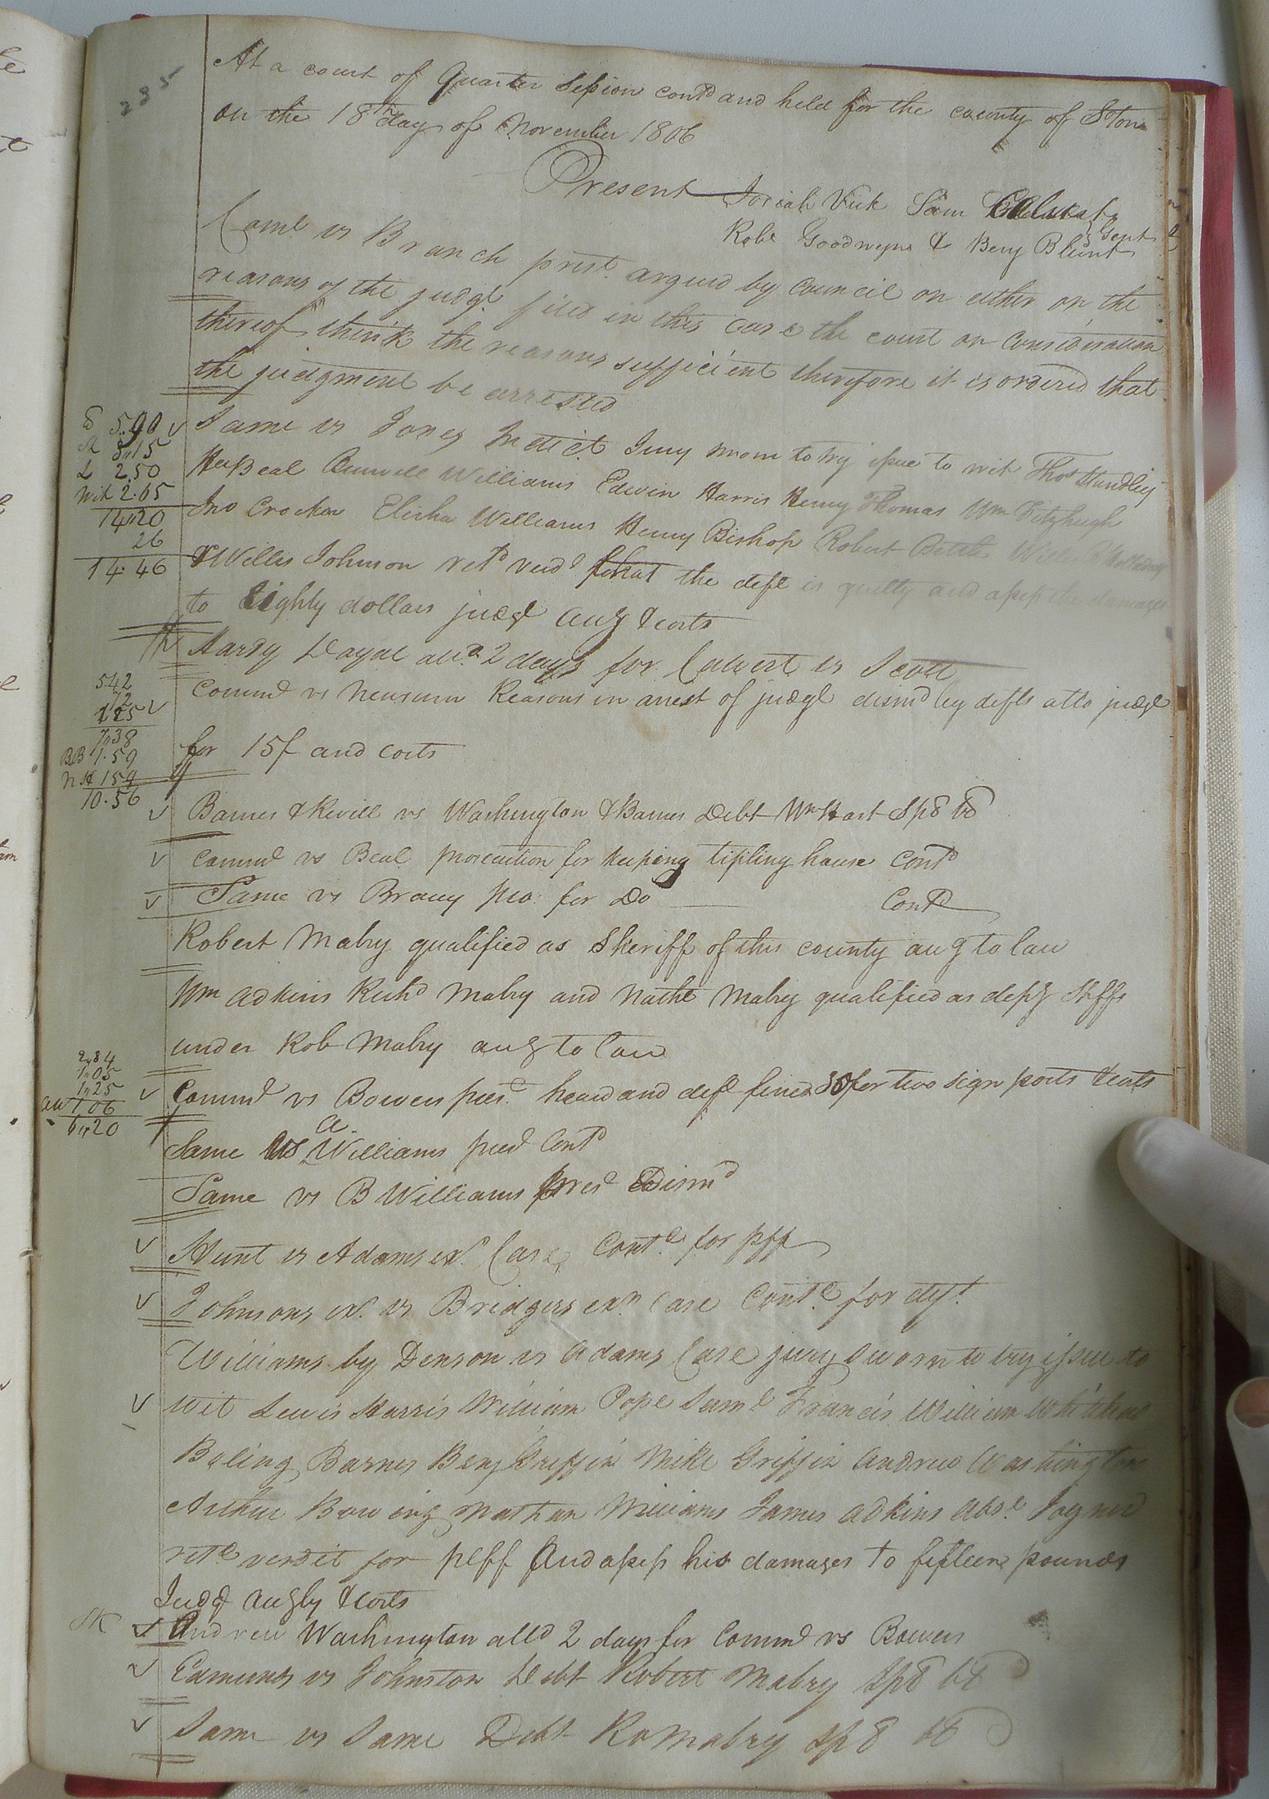 235
At a court of Quarter Session contd and held for the county of Ston
on the 18th day of November 1806
Present Josiah Vick Sam
Robt Goodwyn & Benj Blunt Gent
Comlt vs Branch prest argued by Council on either on the
reasons of the judgt filed in this case the court on consideration
thereof think the reasons sufficient therefore it is ordered that
the judgment be arrested
5.90
3,15
L 2,50
Wit 2.65
14,20
26
14.46
Same vs Jones Indict Jury sworn to try issue to wit Thos Hundley
Beal Williams Edwin Harris Henry Thomas Wm Fitzhugh
Jno Crocker Elisha Williams Henry Bishop Robert
& Willis Johnson retd verdt that the deft is guilty and assess the damages
to Eighty dollars judgt aug & costs
Hardy alld 2 days for Calvert vs Scott
5.42
72
1.25
7,38
1.59
159
10.56
Commlt vs Newsum Reasons in arrest of judgt dismd by defts atto judgt
for 15f and costs
Barnes & Kevill vs Washington & Barnes Debt Wm Hart Sp B
Commlt vs Beal prosecution for keeping tipling house Contd
Same vs Bracey pro: for Do Contd
Robert Mabry qualified as Sheriff of this county aug to law
Wm Adkins Richd Mabry and Nathl Mabry qualified as depy Shffs
under Rob Mabry aug to law
2,84
1,05
1,25
aw 1,06
6,20
Commlt vs Bowers prest heard and deft fined 30f for two sign posts & costs
Same vs a Williams prest Contd
Same vs B Williams prest Dismd
Hunt vs Adams exr Case Contd for pff
Johnsons exr vs Bridgers exr case Contd for deft
Williams by Denson vs Adams Case jury sworn to try issue to
wit Lewis Harris William Pope Saml Francis William Whitehead
Boling Barnes Benj Griffin Mike Griffin Andrew Washington
Arthur Bowing Nathan Williams James Adkins Absl Joyner
retd verdit for plff And assess his damages to fifteen pounds
Judgt augby & costs
Andrew Washington alld 2 days for Commlt vs Bowers
Edmunds vs Johnston Debt Robert Mabry Sp B
Same vs Same Debt Ro Mabry Sp B